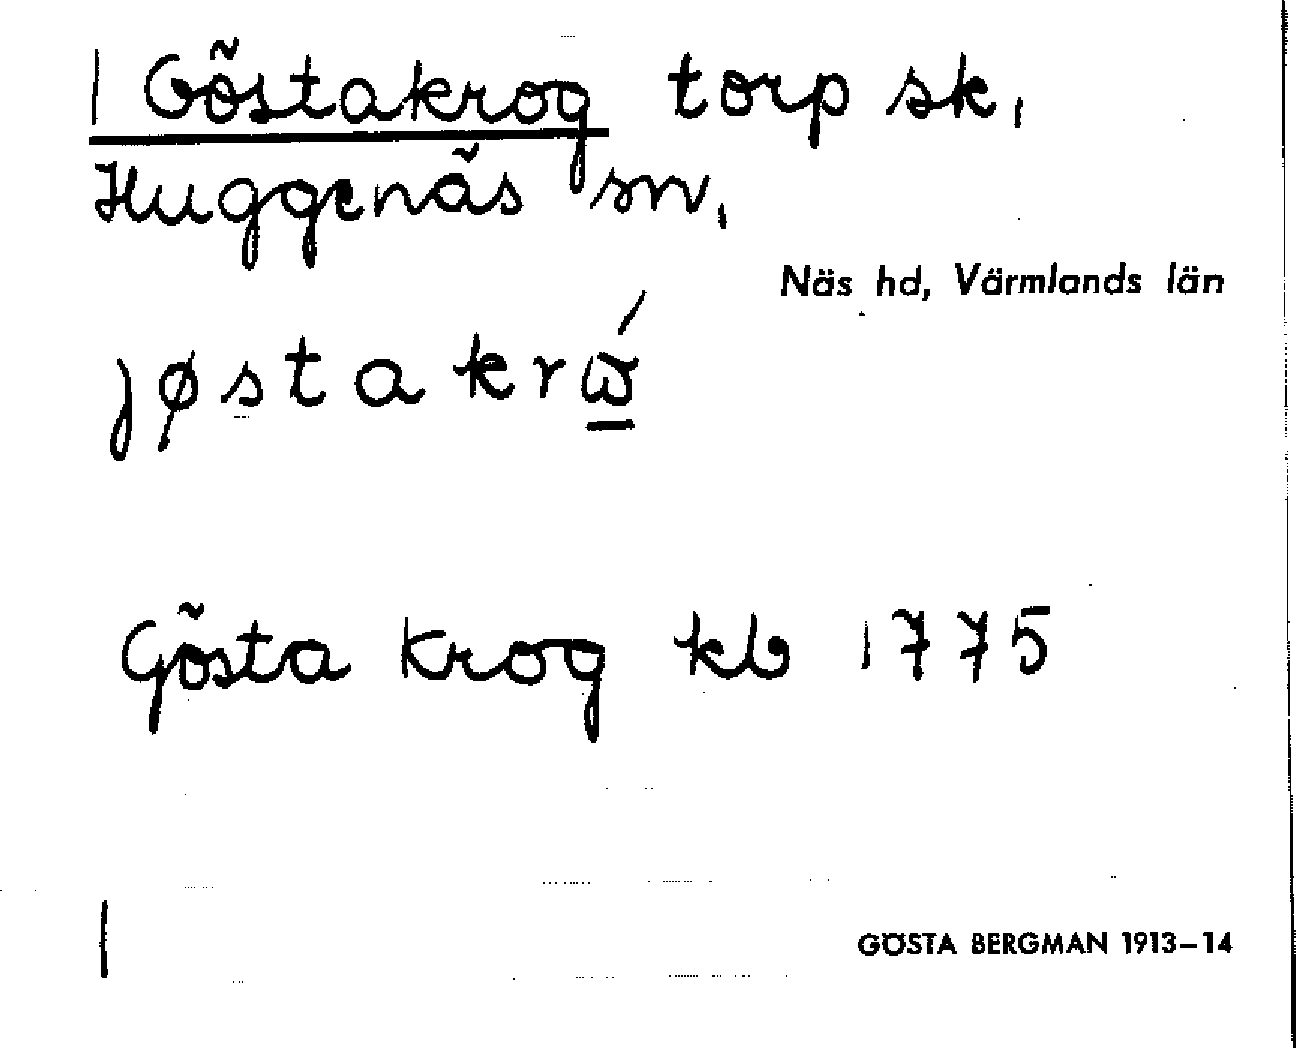 1 Göstakrog torp sk.
Huggenäs sn.
Näs hd, Värmlands län
jøstakrώ̲
Gösta Krog kb 1775
1
GÖSTA BERGMAN 1913–14